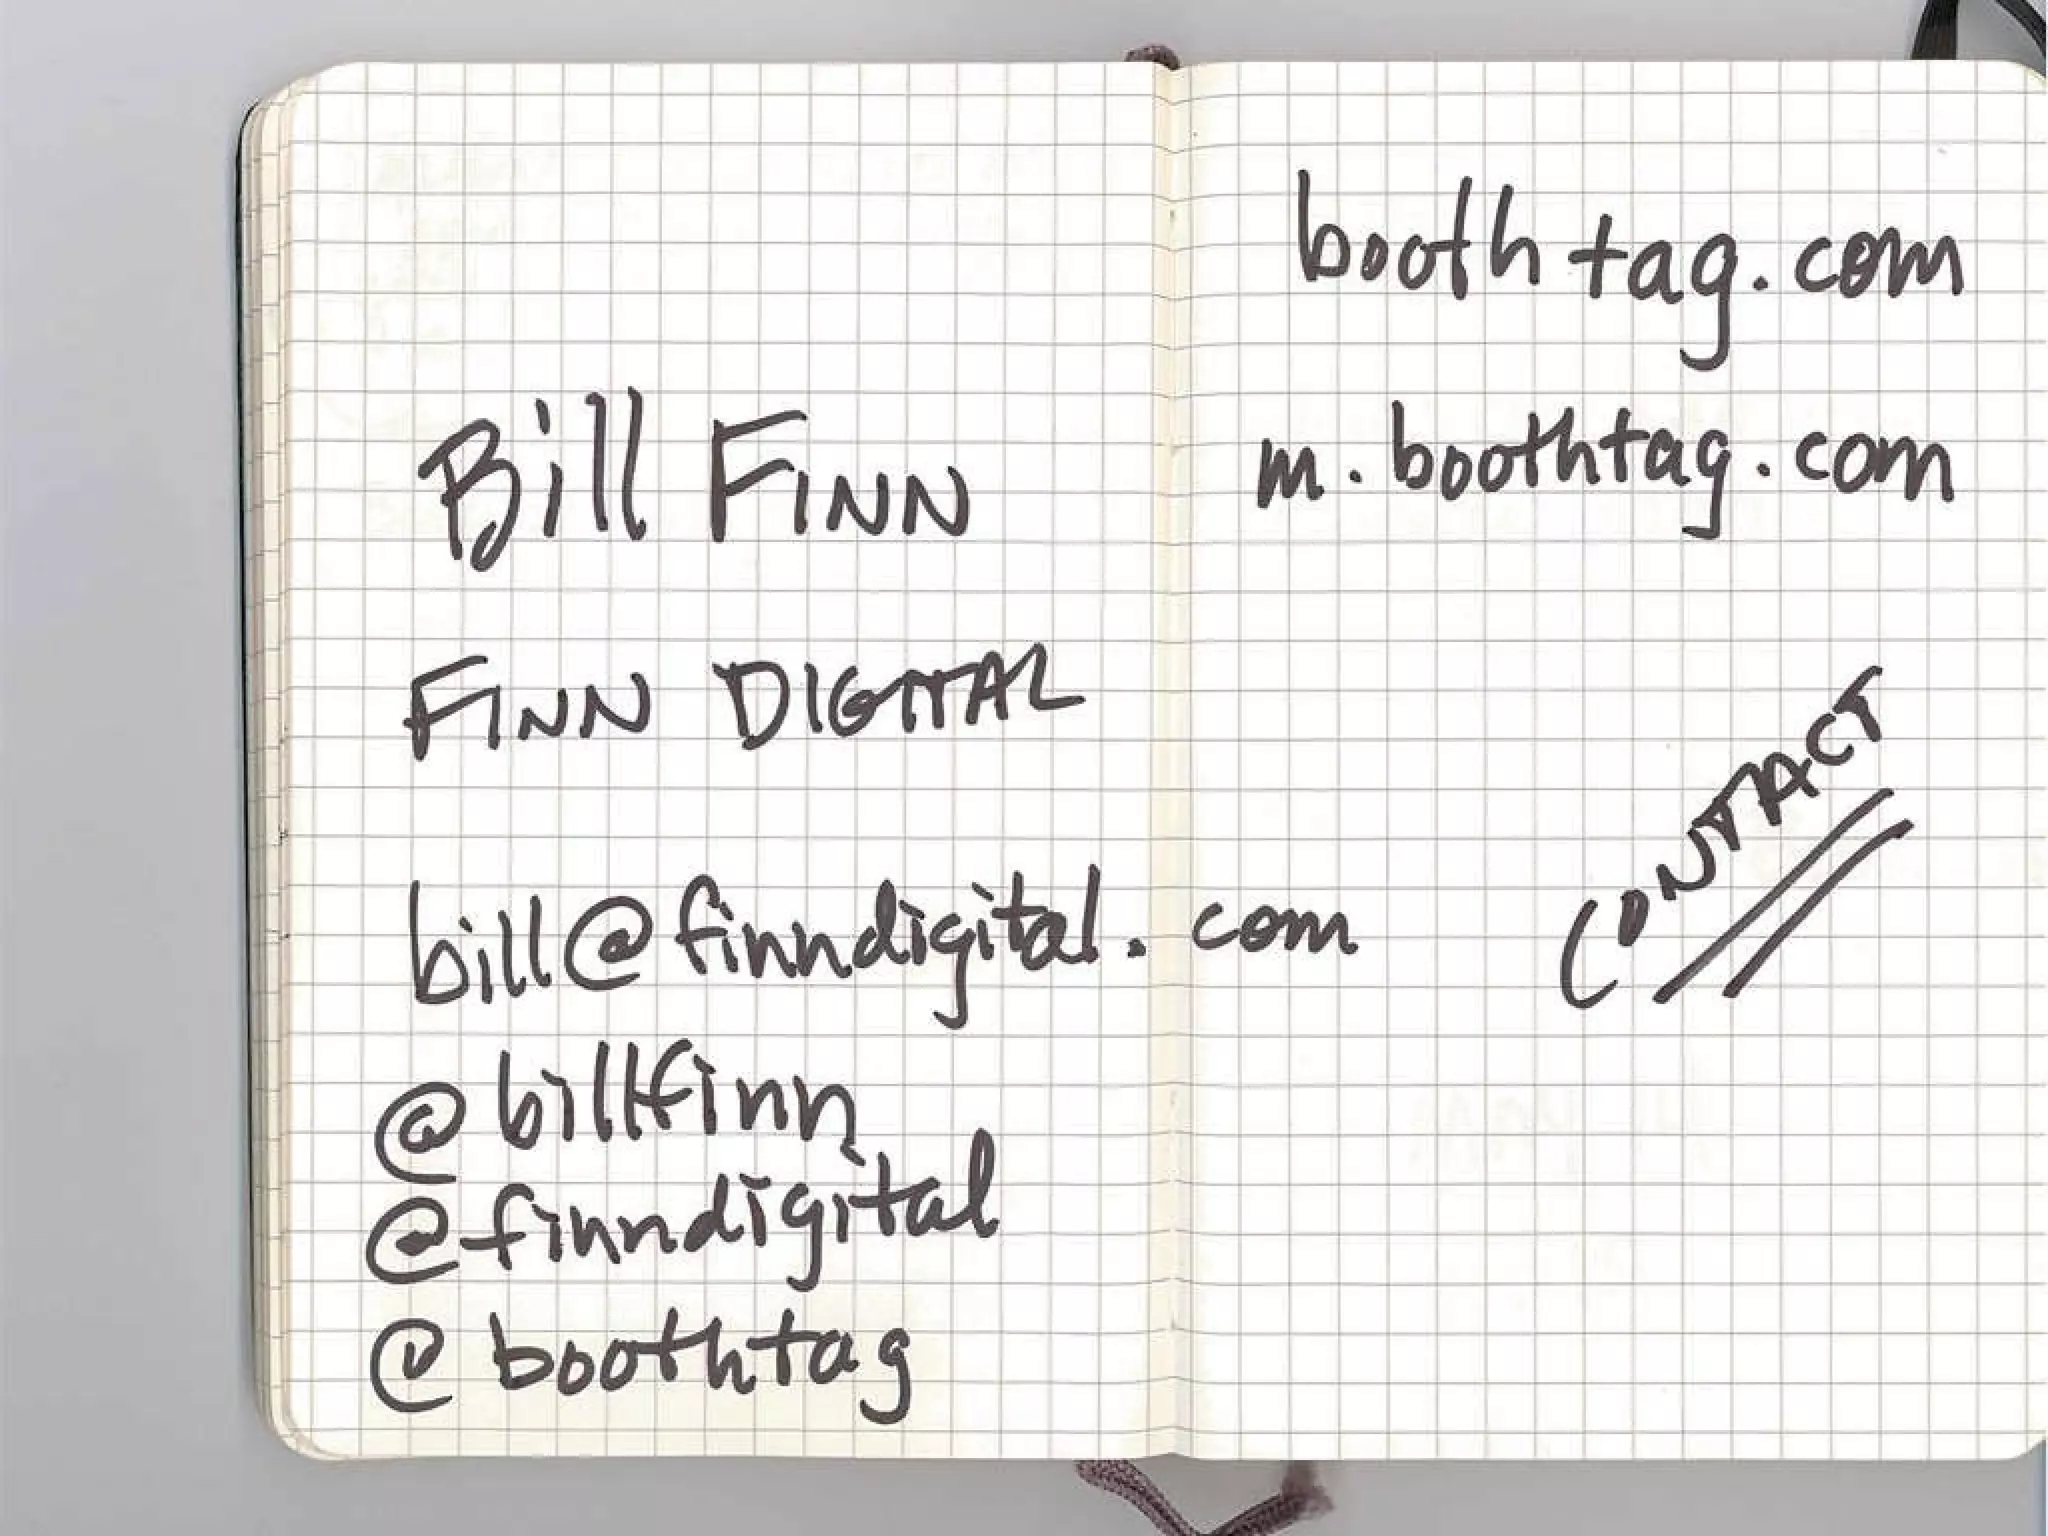 Bill FINN
FINN DIGITAL
bill@finndigital.com
@billfinn
@finndigital
@boothtag
boothtag.com
m.boothtag.com
CONTACT